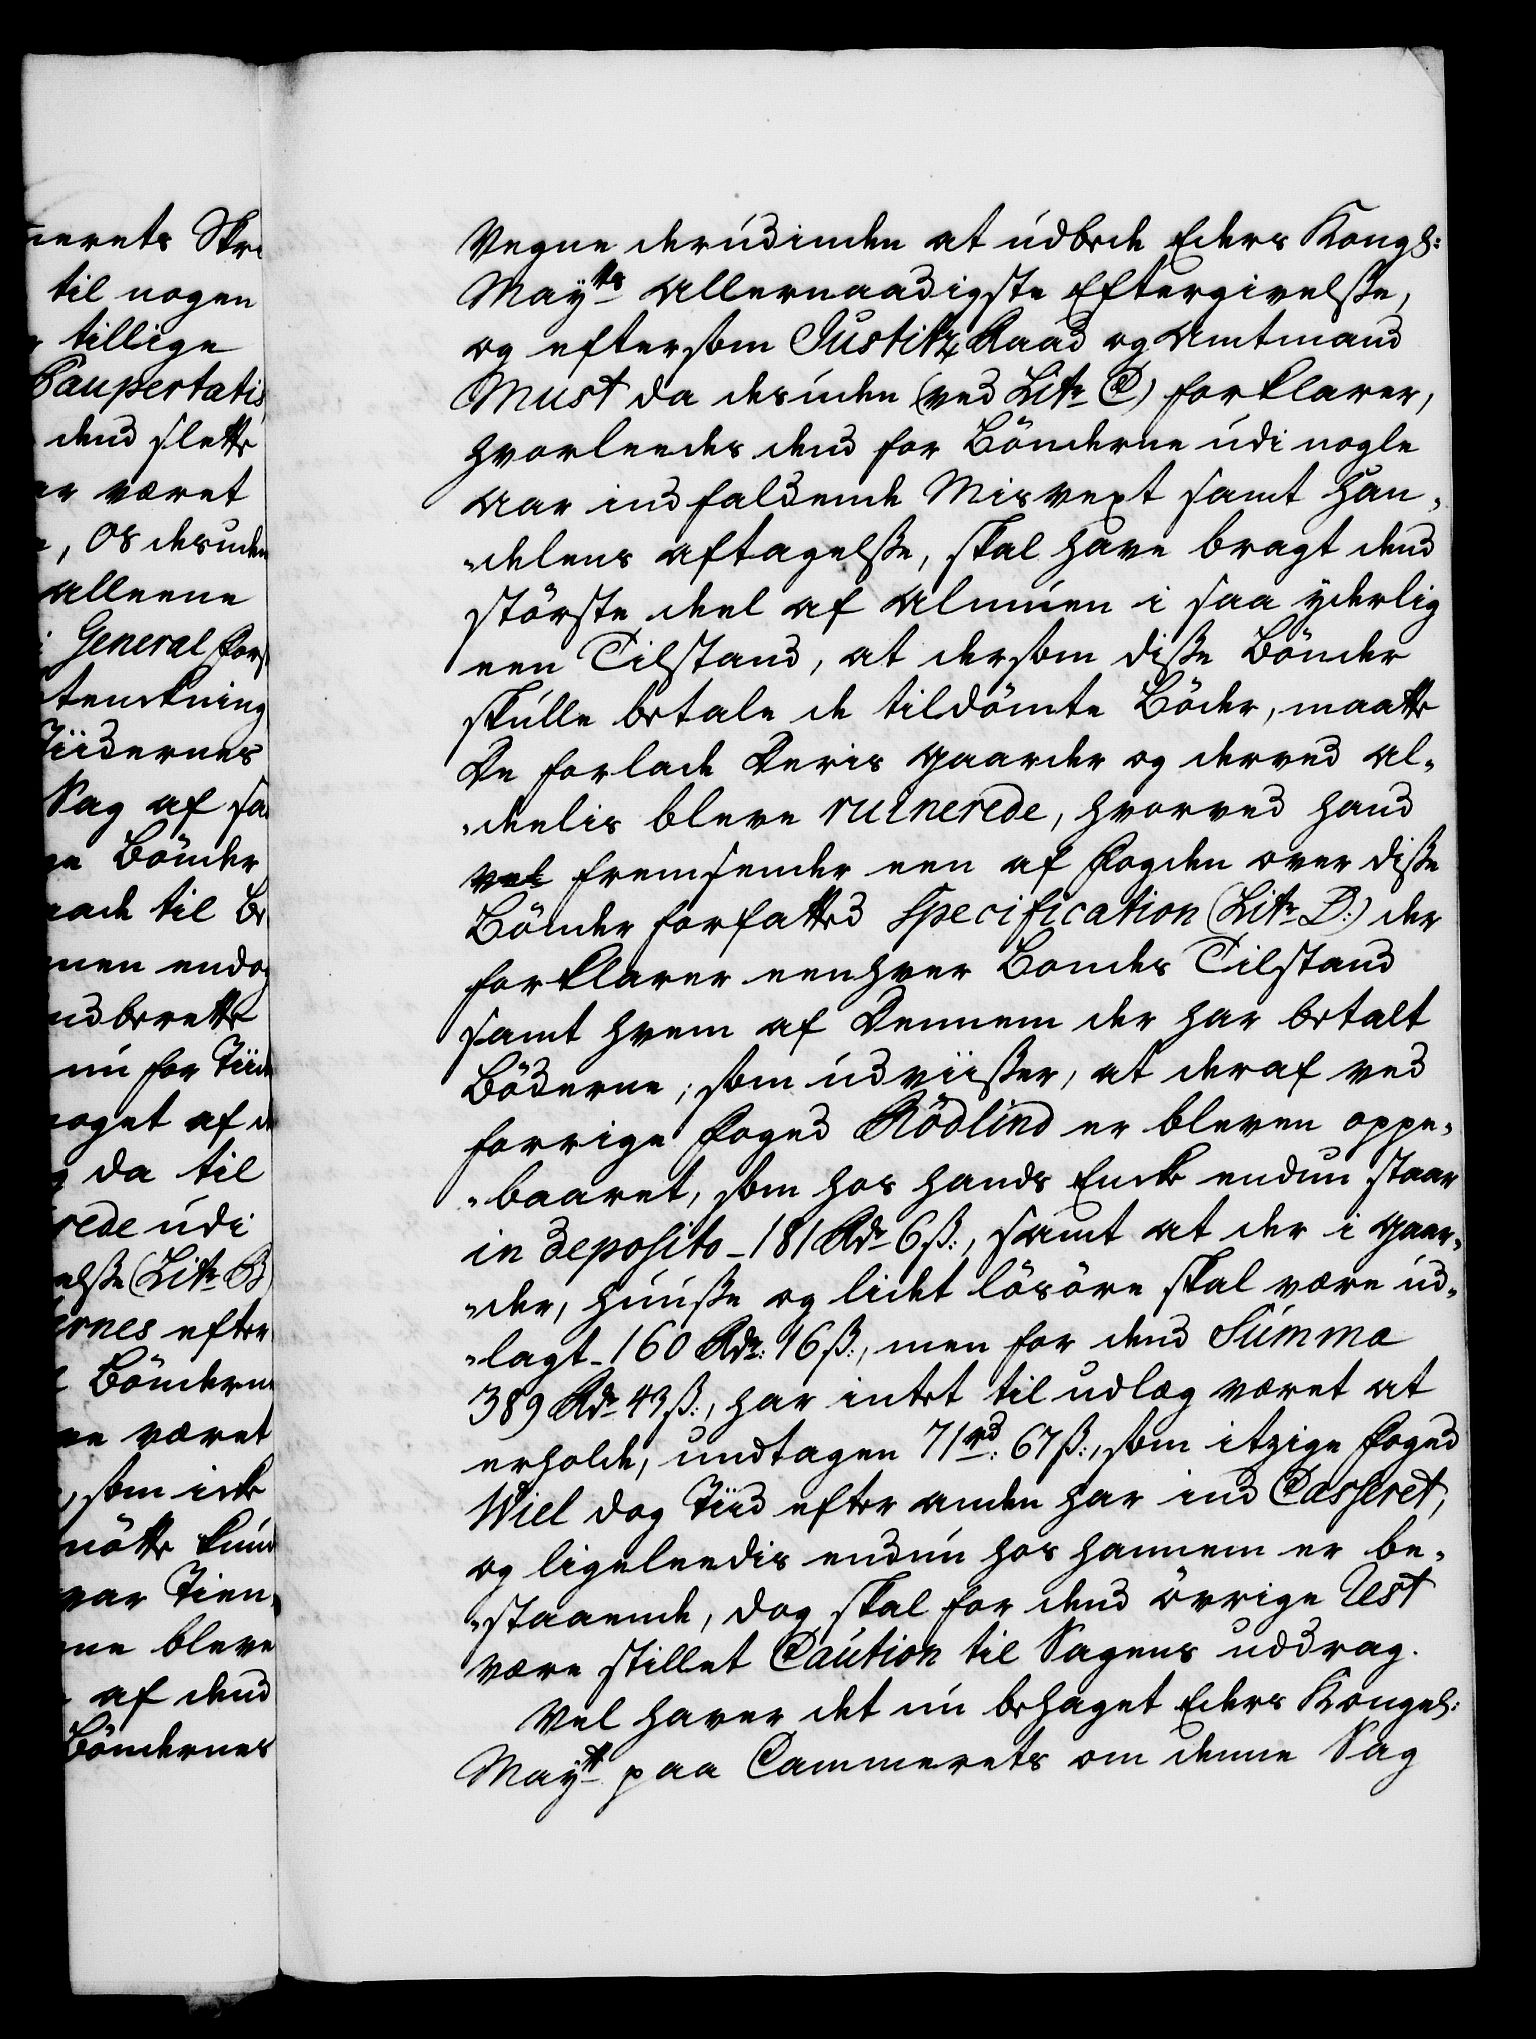 nerets Skri
til nogen
tillige
Paupertatis
dend slette
er været
, os desuden
alleene
General Fors
tenckning
Tiidernes
Sag af sa
ge Bönder
nade til Be
men endog
ndberette
nu for Tiide
noget af d
da til
rede udi
else (Litr. B)
ernes efter
Bönderne
ne været
, som icke
nötte kund
var Tien
ne bleve
af dend
Böndernes
Vegne derudinden at udbede Eders Kongl:
Mayts Allernaadigste Eftergivelsse,
og eftersom Justitz Raad og Amtmand
Must da desuden (ved Litr. C) forklarer,
hvorleedes dend for Bönderne udi nogle
Aar indfaldende Misvext samt Han„
„delens aftagelsse, skal have bragt dend
störste deel af Almuen i saa yderlig
een Tilstand, at dersom disse Bönder
skulle betale de tildömte Böder, maatte
De forlade Deris gaarder og derved al„
„deelis bleve ruinerede, hvorved hand
vel fremsender een af Fogden over disse
Bönder forfatted Specification (Litr. D:) der
forklarer eenhver Bondes Tilstand
samt hvem af Dennem der har betalt
Böderne; som udviisser, at deraf ved
forrige Foged Rödlind er bleven oppe„
„baaret, som hos hands Encke endnu staar
in deposito - 181 Rdr. 6 ß:, samt at der i gaar„
„der, Huusse og lidet lösöre skal være ud„
„lagt - 160 Rdr: 16 ß:, men for dend Summa
389 Rdr. 43 ß:, har intet til udlæg været at
erholde, undtagen 71 rd: 67 ß:, som itzige Foged
Wiel dog Tiid efter anden har ind Casseret,
og ligeleedis endnu hos hannem er be„
„staaende, dog skal for dend övrige Rest
være stillet Caution til Sagens uddrag.
Vel haver det nu behaget Eders Kongel:
Mayt. paa Cammerets om denne Sag